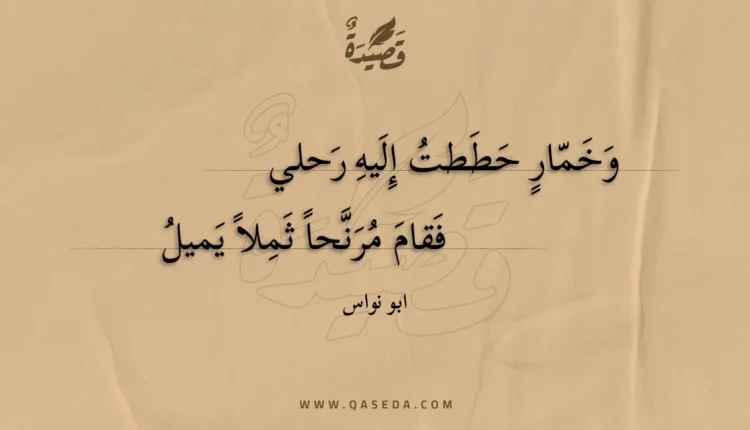 قَصِيدَةٌ
وَخَمّارٍ حَطَطتُ إِلَيهِ رَحلي
فَقامَ مُرَنَّحاً ثَمِلاً يَميلُ
ابو نواس
WWW.QASEDA.COM